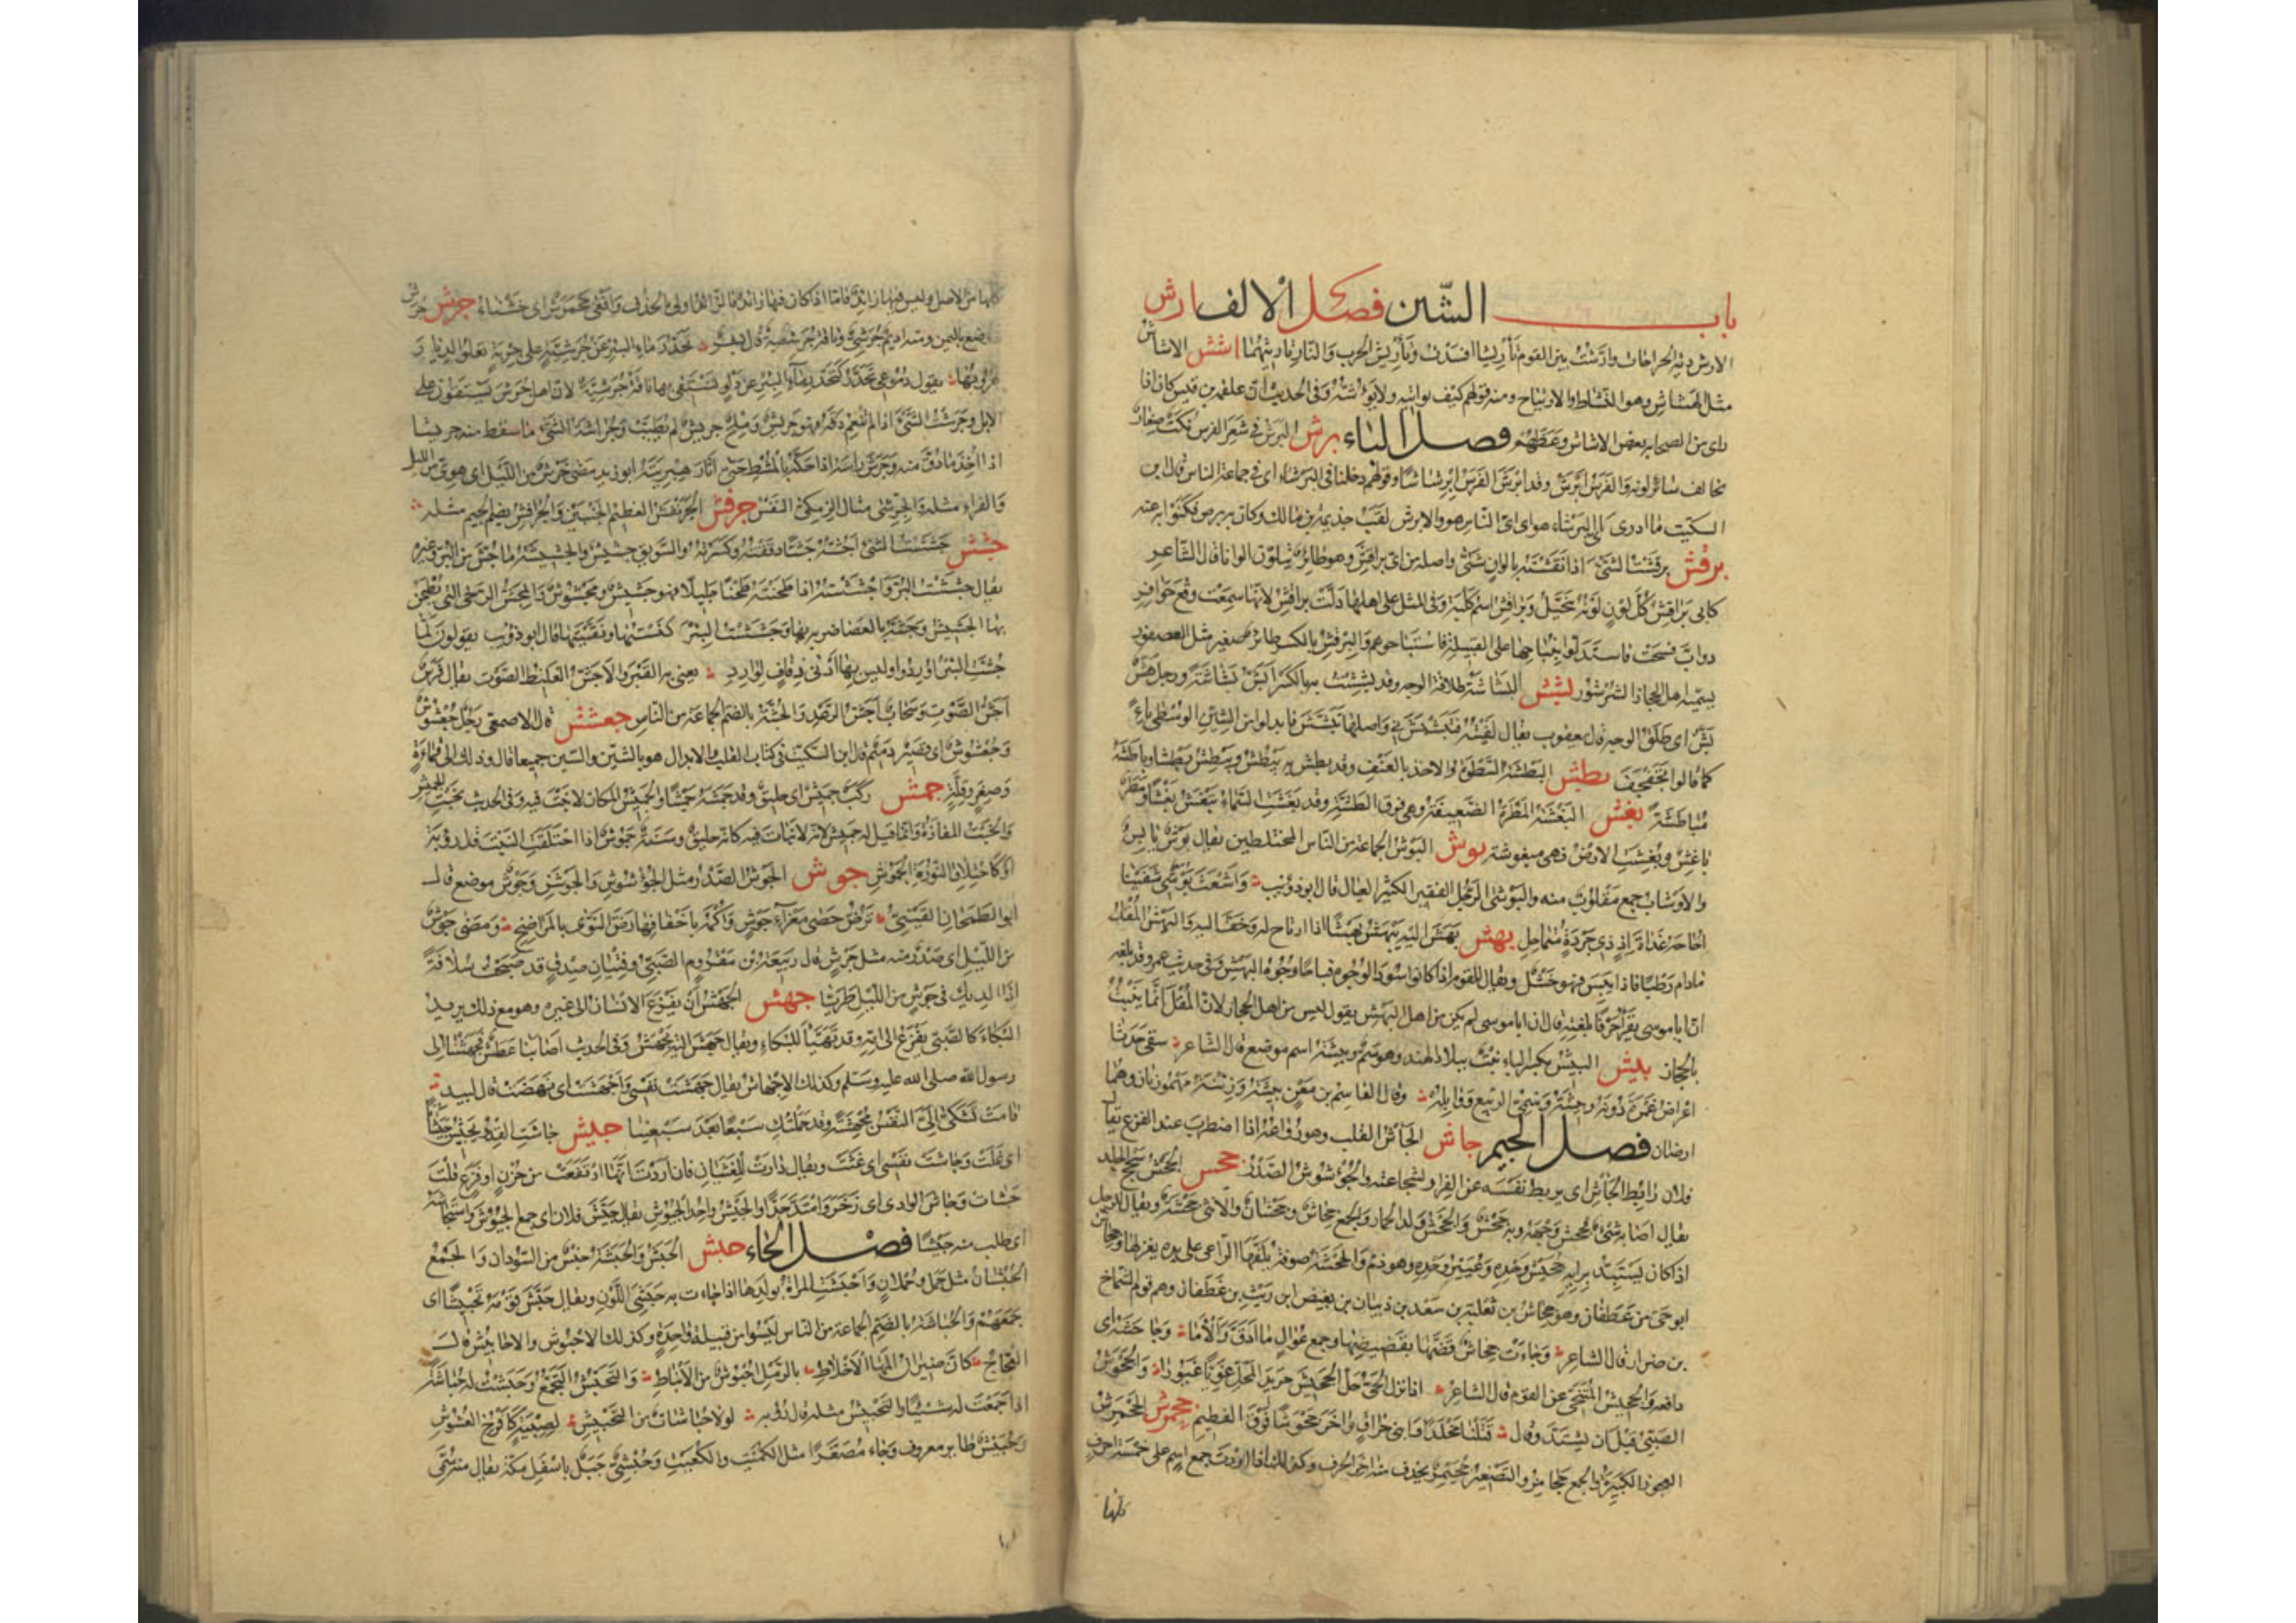 باب الشين فصل الالف ارش
الارش دية الجراحات وارشت بين القوم تأريشا افسدت وتأريش الحرب والنار تاريثهما اشش الاشاش
مثل الهشاش وهو النشاط والارتياح ومنه قولهم كيف بواشه ولايؤشه وفى الحديث ان علقمة بن قيس كان اذا
راى من اصحابه بعض الاشاش وعظهم فصل الباء برش البرش فى شعر الفرس نكت صغار
تخالف سائر لونه والفرس ابرش وقد ابرش الفرس ابرشاشا وقولهم دخلنا فى البرشاء اى فى جماعة الناس قال ابن
السكيت ما ادرى اى البرشاء هو اى اى الناس هو والابرش لقب جذيمة بن مالك وكان به برص فكنوا به عنه
برقش برقشت الشئ اذا نقشته بالوان شتى واصله من ابى براقش وهو طائر يتلون الوانا قال الشاعر
كابى براقش كل لون لونه يتخيل وبراقش اسم كلبة وفى المثل على اهلها دلت براقش لانها سمعت وقع حوافر
دواب فنبحت فاستدلوا بنباحها على القبيلة فاستباحوهم والبرقش بالكسر طائر صغير مثل العصفور
يسميه اهل الحجاز الشرشور بشش البشاشة طلاقة الوجه وقد بششت به بالكسر ابش بشاشة ورجل هش
بش اى طلق الوجه قال يعقوب يقال لقيته فتبشبش بى واصلها تبشش فابدلوا من الشين الوسطى باء
كما قالوا تجفجف بطش البطشة السطوة والاخذ بالعنف وقد بطش به يبطش ويبطش بطشا وباطشه
مباطشة بغش البغشة المطرة الضعيفة وهى فوق الطشة وقد بغشت السماء تبغش بغشا ومطر
باغش وبغشت الارض فهى مبغوشة بوش البوش الجماعة من الناس المختلطين يقال بوش بائس
والاوشاب جمع مقلوب منه والبوشى الرجل الفقير الكثير العيال قال ابو ذؤيب واشعث بوشى شفينا
احاحه غداة اذ ذى جردة متماحل بهش بهش اليه يبهش بهشا اذا ارتاح له وخف اليه والبهش المقل
مادام رطبا فاذا يبس فهو خشل ويقال للقوم اذا كانوا سود الوجوه قباحا وجوه البهش وفى حديث عمر وقد بلغه
ان ابا موسى يقرأ حرفا بلغته قال ان ابا موسى لم يكن من اهل البهش يقول ليس من اهل الحجاز لان المقل انما ينبت
بالحجاز بيش البيش بكسر الباء نبت ببلاد الهند وهو سم وبيشة اسم موضع قال الشاعر سقى جدثا
اعراض غمرة دونه وبيشة وسمى الربيع ووابله وقال القاسم بن معن بئشة وزئنة مهموزتان وهما
ارضان فصل الجيم جاش الجأش القلب وهو رواعه اذا اضطرب عند الفزع يقال
فلان رابط الجأش اى يربط نفسه عن الفرار لشجاعته والجؤشوش الصدر جحش الجحش سحج الجلد
يقال اصابه شئ فجحش وجهه وبه جحش والجحش ولد الحمار والجمع جحاش وجحشان والانثى جحشة ويقال للرجل
اذا كان يستبد برايه جحيش وحده وعيير وحده وهو ذم والجحشة صوفة يلفها الراعى على يده يغزلها وجحاش
ابو حى من غطفان وهو جحاش بن ثعلبة بن سعد بن ذبيان بن بغيض بن ريث بن غطفان وهم قوم الشماخ
بن ضرار قال الشاعر وجاءت جحاش قضها بقضيضها وجمع عوال ما ادق والأما وجاحشه اى
دافعه والجحيش المتنحى عن القوم قال الشاعر اذا نزل الحى حل الجحيش حريد المحل غويا غيورا والجحوش
الصبى قبل ان يشتد وقال قتلنا مخلدا وابنى حراق واخر جحوشا فوق الفطيم جحمرش الجحمرش
العجوز الكبيرة والجمع جحامر والتصغير جحيمر يحذف منه اخر الحرف وكذلك اذا اردت جمع اسم على خمسة احرف
كلها
كلها من الاصل وليس فيها زائد فاما اذا كان فيها زائد فالزائد اولى بالحذف وافعى جحمرش اى خشناء جرش جرش
موضع باليمن ومنه اديم جرشى وناقة جرشية قال بشر تحدر ماء البئر عن جرشية على جربة تعلو الديار
غروبها يقول دموعى تحدر كتحدر ماء البئر عن دلو تستقى بها ناقة جرشية لان اهل جرش يستقون على
الابل وجرشت الشئ اذا لم تنعم دقه فهو جريش وملح جريش لم يطيب وجراشة الشئ ما سقط منه جريشا
اذا اخذ ما دق منه وجرش راسه اذا حكه بالمشط حتى اثار هبريته ابو زيد مضى جرش من الليل اى هوى من الليل
والفراء مثله والجرشى مثال الزمكى النفس جرفش الجرنفش العظيم الجنبين والجرافش بضم الجيم مثله
جشش جششت الشئ اجشه جشا دققته وكسرته والسويق جشيش والجشيشة ما جش من البر وغيره
يقال جششت البر واجششته اذا طحنته طحنا جليلا فهو جشيش ومجشوش والمجش الرحى التى يطحن
بها الجشيش وجشه بالعصا ضربه بها وجششت البئر كنستها ونقيتها قال ابو ذؤيب يقولون لما
جشت البئر اوردوا وليس بها ادنى ذفاف لوارد يعنى به القبر والاجش الغليظ الصوت يقال فرس
اجش الصوت وسحاب اجش الرعد والجشة بالضم الجماعة من الناس جعشش قال الاصمعى رجل جعشوش
وجعسوس اى قصير دميم قال ابن السكيت فى كتاب القلب والابدال هو بالشين والسين جميعا قال وذلك الى قماءة
وصغر وقلة جمش ركب جميش اى حليق وقد جمشه جمشا والجميش المكان لا نبت فيه وفى الحديث بخبت الجميش
والخبت المفازة وانما قيل له جميش لانه لا نبات فيه كانه حليق وسنة جموش اذا احتلقت النبت قال رؤبة
او كاحتلاق النورة الجموش جوش الجوش الصدر مثل الجؤشوش والجوشن وجوش موضع قال
ابو الطمحان القينى ترض حصى معزاء جوش واكمه باخفافها رض النوى بالمراضح ومضى جوش
من الليل اى صدر منه مثل جرش قال ربيعة بن مقروم الضبى وفتيان صدق قد صبحت سلافة
اذا الديك فى جوش من الليل طربا جهش الجهش ان يفزع الانسان الى غيره وهو مع ذلك يريد
البكاء كالصبى يفزع الى امه وقد تهيأ للبكاء ويقال جهش اليه يجهش وفى الحديث اصابنا عطش فجهشنا الى
رسول الله صلى الله عليه وسلم وكذلك الاجهاش يقال جهشت نفسى واجهشت اى نهضت قال لبيد
قامت تشكى الى النفس مجهشة وقد حملتك سبعا بعد سبعينا جيش جاشت القدر تجيش جيشا
اى غلت وجاشت نفسى اى غثت ويقال دارت للغثيان فان اردت انها ارتفعت من حزن او فزع قلت
جشأت وجاش الوادى اى زخر وامتد جدا والجيش واحد الجيوش يقال جيش فلان اى جمع الجيوش واستجاشه
اى طلب منه جيشا فصل الحاء حبش الحبش والحبشة جنس من السودان والجمع
الحبشان مثل حمل وحملان واحبشت المراة بولدها اذا جاءت به حبشى اللون ويقال حبش قومه تحبيشا اى
جمعهم والحباشة بالضم الجماعة من الناس ليسوا من قبيلة واحدة وكذلك الاحبوش والاحابيش قال
العجاج كأن صيران المها الاخلاط بالرمل احبوش من الانباط والتحبش التجمع وحبشت له حباشة
اذا جمعت له شيئا والتحبيش مثله قال رؤبة لولا حباشات من التحبيش لصبية كأفرخ العشوش
وحبيش طاير معروف وجاء مصغرا مثل الكميت والكعيت وحبشى جبل باسفل مكة يقال منه سمى